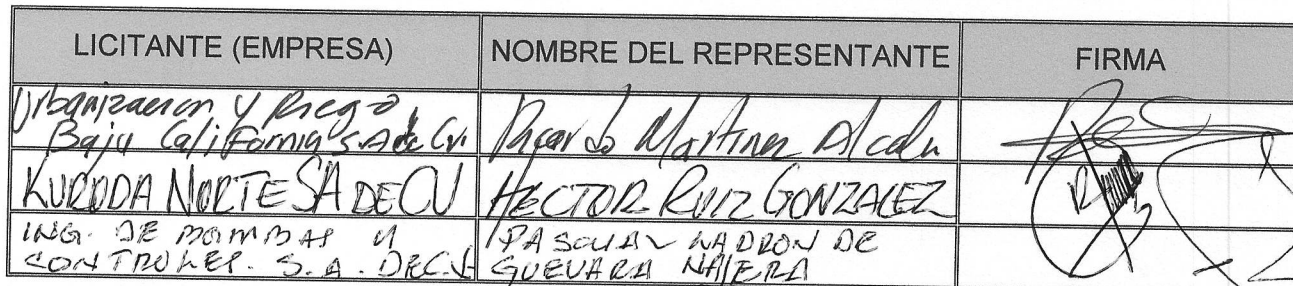 LICITANTE (EMPRESA) NOMBRE DEL REPRESENTANTE FIRMA
Urbanizacion y Riego
Baja California S.A de C.V. Ricardo Martinez Alcala
KURODA NORTE SA DE CV HECTOR RUIZ GONZALEZ
ING. DE BOMBAS Y PASCUAL LADRON DE
CONTROLES. S.A. DE C.V. GUEVARA NAJERA